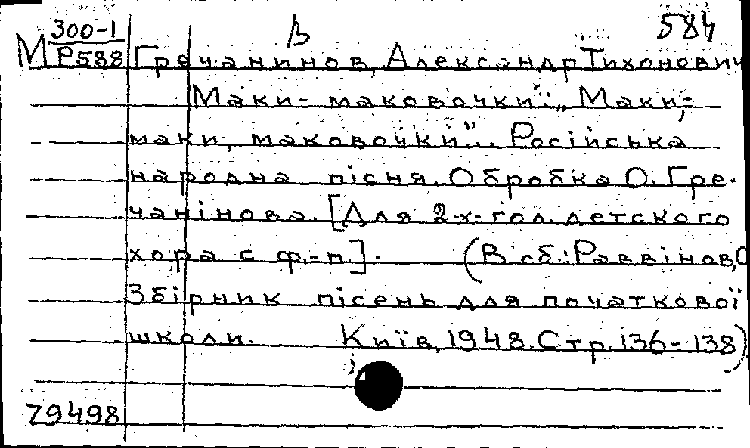 300-1 В 584
М Р588 Гречанинов, Александр Тихонович
Маки-маковочки: „Маки,
маки, маковочки"... Російська
народна пісня. Обробка О. Гре-
чанінова. [Для 2-х-гол. детского
хора с ф.-п.]. (В сб.: Раввінов, О
Збірник пісень для початкової
школи. Київ, 1948. Стр. 136-138)
79498